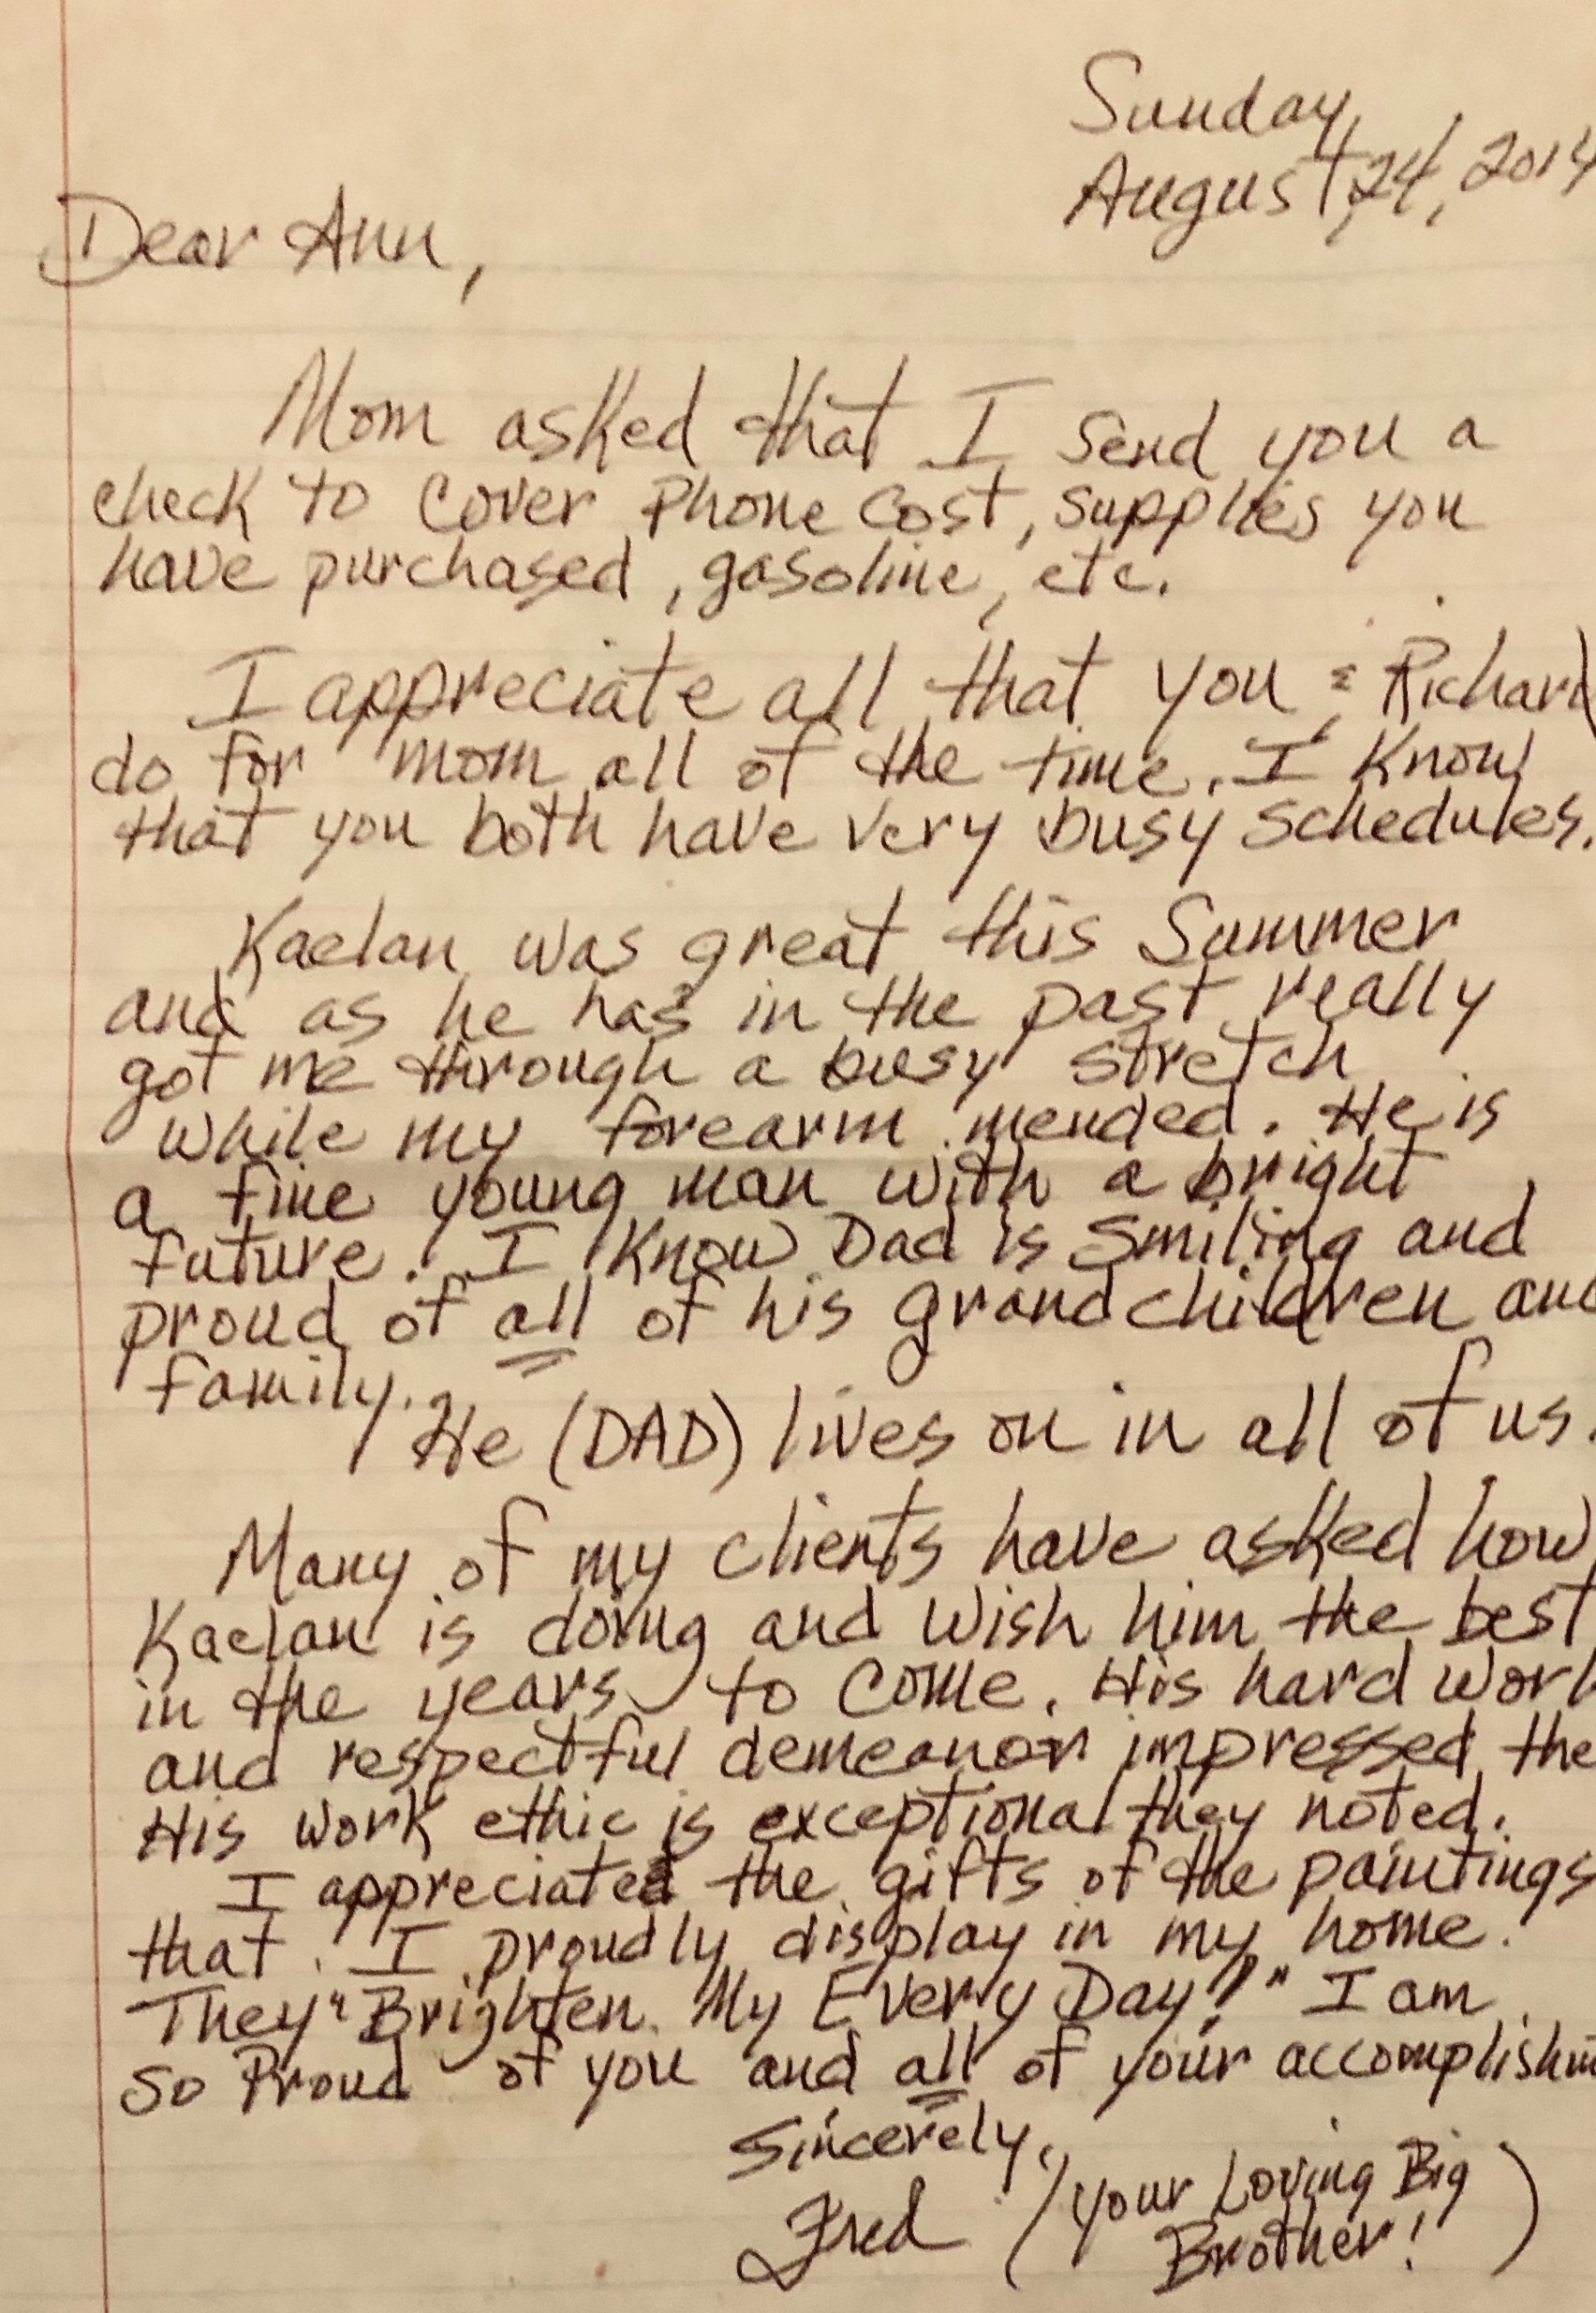 Sunday,
August, 24, 2014
Dear Ann,
Mom asked that I send you a
check to cover Phone cost, supplies you
have purchased, gasoline, etc.
I appreciate all that you & Richard
do for mom all of the time. I know
that you both have very busy schedules.
Kaelan was great this Summer
and as he has in the past really
got me through a busy stretch
while my forearm mended. He is
a fine young man with a bright
future. I know Dad is smiling and
proud of all of his grandchildren and
family.
He (DAD) lives on in all of us.
Many of my clients have asked how
Kaelan is doing and wish him the best
in the years to come. His hard work
and respectful demeanor impressed the
His work ethic is exceptional they noted.
I appreciated the gifts of the paintings
that I proudly display in my home.
They "Brighten My Every Day!" I am
so Proud of you and all of your accomplishm
Sincerely,
Fred (your Loving Big
Brother!)